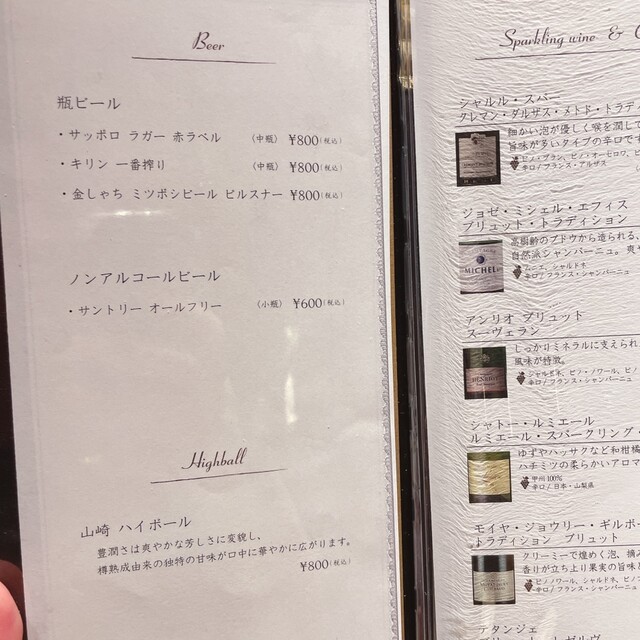 Beer
瓶ビール
・サッポロ ラガー 赤ラベル （中瓶） ¥800（税込）
・キリン 一番搾り （中瓶） ¥800（税込）
・金しゃち ミツボシビール ピルスナー ¥800（税込）
ノンアルコールビール
・サントリー オールフリー （小瓶） ¥600（税込）
Highball
山崎 ハイボール
豊潤さは爽やかな芳しさに変貌し、
樽熟成由来の独特の甘味が口中に華やかに広がります。
¥800（税込）
Sparkling wine &
シャルル・スパー
クレマン・ダルザス・メトド・トラディ
細かい泡が優しく喉を潤して
旨味が多いタイプの辛口です
ピノ・ブラン、ピノ・オーセロワ、ピ
辛口/フランス・アルザス
ジョゼ・ミシェル・エフィス
ブリュット・トラディション
高樹齢のブドウから造られる、
自然派シャンパーニュ。爽や
MICHEL
ムニエ、シャルドネ
辛口/フランス・シャンパーニュ
アンリオ ブリュット
スーヴェラン
しっかりミネラルに支えられ
風味が特徴。
HENRIOT
シャルドネ、ピノ・ノワール、ピノ
辛口/フランス・シャンパーニュ
シャトー・ルミエール
ルミエール・スパークリング・
ゆずやハッサクなど和柑橘
ハチミツの柔らかいアロマ
甲州100%
辛口/日本・山梨県
モイヤ・ジョウリー・ギルボー
トラディション ブリュット
クリーミーで煌めく泡、摘み
香りが立ち上り果実の旨味と
ピノノワール、シャルドネ、ピノ
辛口/フランス・シャンパーニュ
テタンジェ